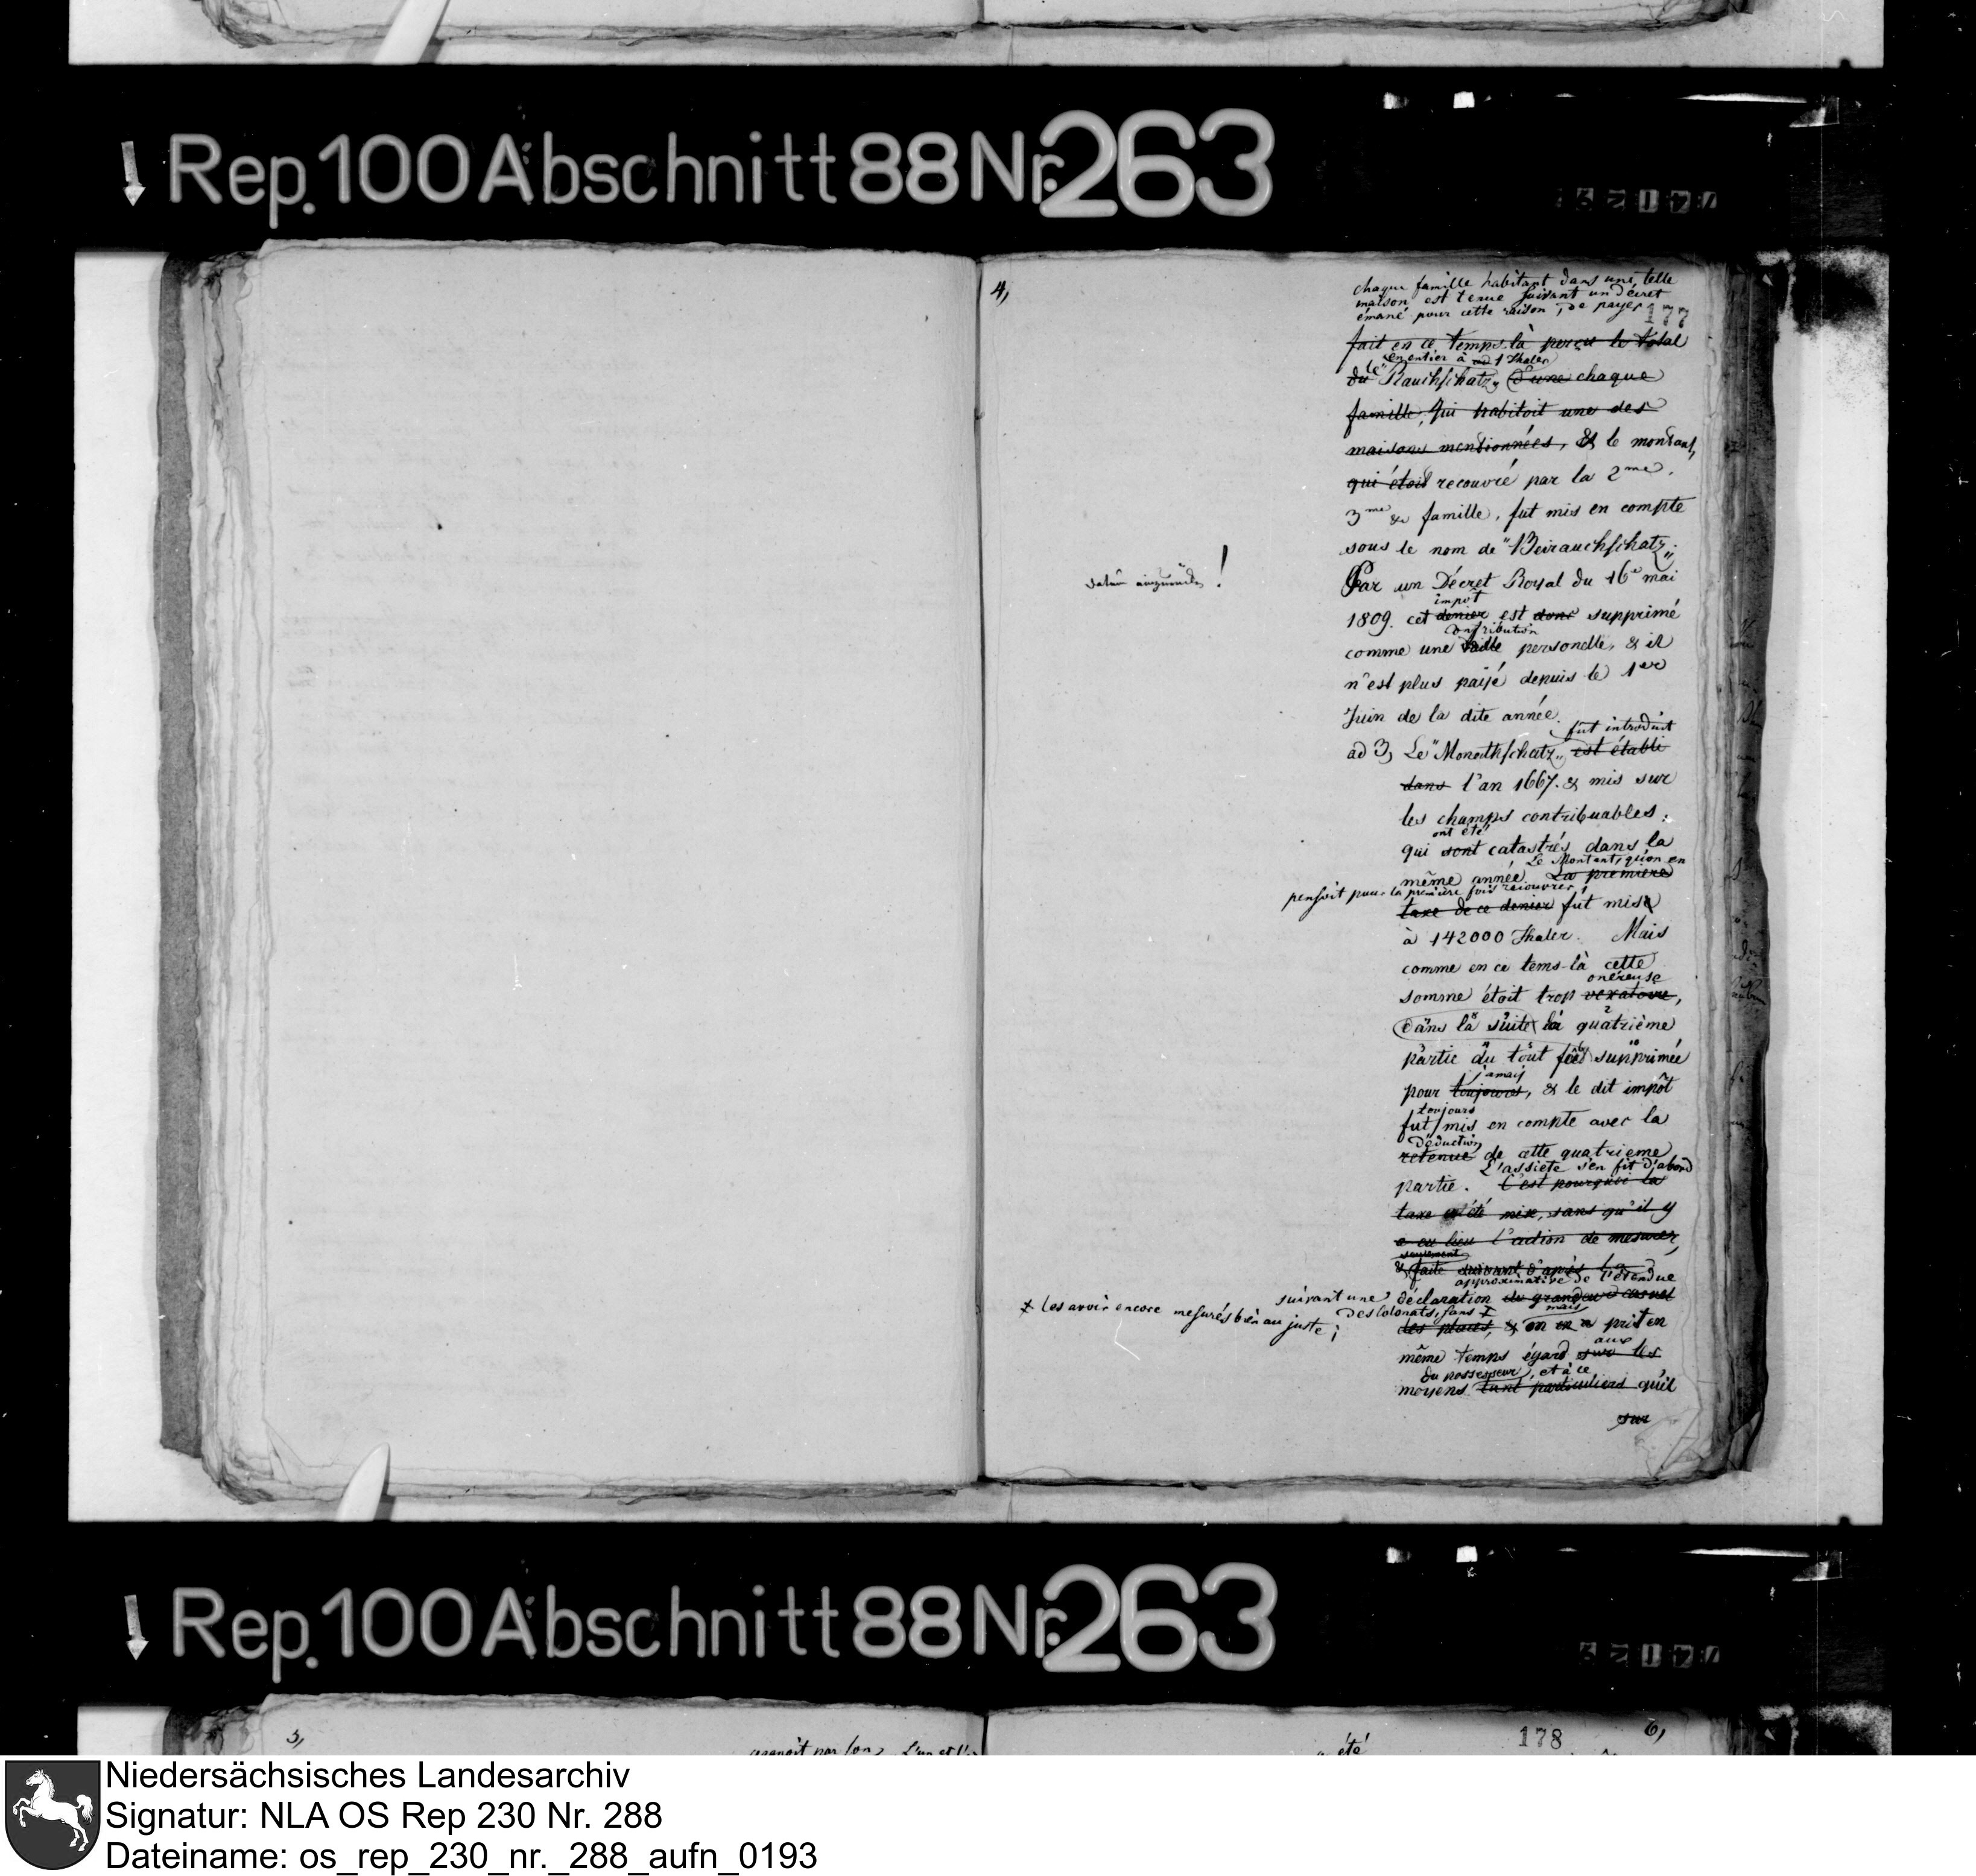 Rep. 100 Abschnitt 88 Nr. 263
4,
chaque famille habitant dans une telle
maison est tenue suivant un décret
émané pour cette raison, de payer
177
fait en ce temps-là perçu le total
en entier à 1 Thaler
du le "Rauchschatz" d'une chaque
famille, qui habitoit une des
maisons mentionnées, & le montant,
qui étoit recouvré par la 2me,
3me & famille, fut mis en compte
sous le nom de "Beirauchschatz."
Par un Décret Royal du 16e mai
impôt
1809. cet denier est donc supprimé
contribution
comme une taille personelle, & il
n'est plus paijé depuis le 1er
Juin de la dite année.
fut introduit
ad 3, Le "Monathschatz" est établi
dans l'an 1667. & mis sur
les champs contribuables;
ont été
qui sont catastrés dans la
Le Montant, qu'on en
même année. La première
pensoit pour la première fois recouvrer,
taxe de ce denier fut mise
à 142000 Thaler. Mais
comme en ce tems-là cette
onéreuse
somme étoit trop vexatoire,
dans la suite la quatrième
partie du tout fut supprimée
jamais
pour toujours, & le dit impôt
toujours
fut mis en compte avec la
Déduction
retenue de cette quatrieme
L'assiete s'en fit d'abord
partie. C'est pourquoi la
taxe a été mise, sans qu'il y
a eu lieu l'action de mesurer,
seulement
& faite suivant d'après la
approximative de l'étendue
suivant une déclaration de grandeur casuel
des Colonats, sans
‡ les avoir encore mesurés bien au juste;
mais
des places, & on en a prit en
aux
même temps égard sur les
du possesseur, et à ce
moyens tant particuliers qu'il
sur
Rep. 100 Abschnitt 88 Nr. 263
5,
178
6,
a été
Niedersächsisches Landesarchiv
Signatur: NLA OS Rep 230 Nr. 288
Dateiname: os_rep_230_nr._288_aufn_0193